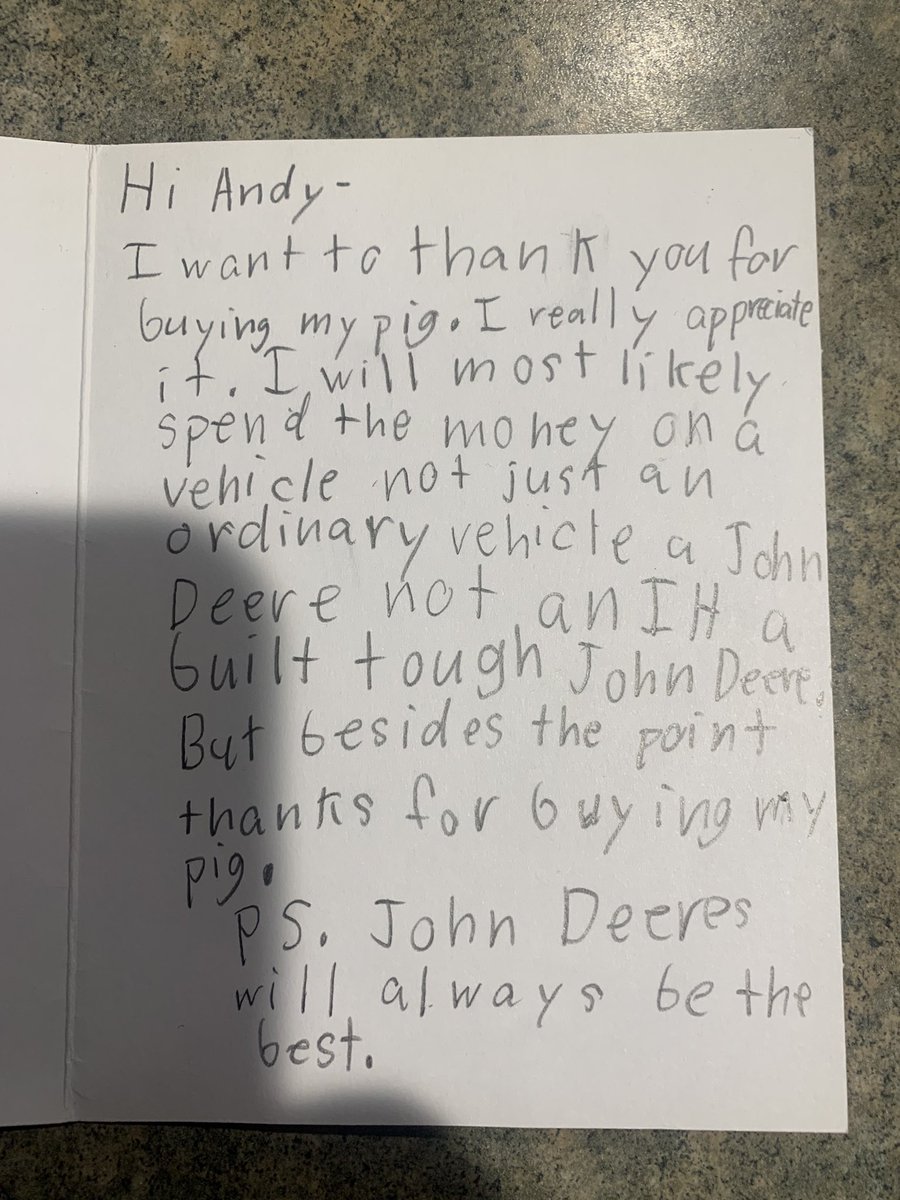 Hi Andy-
I want to thank you for
buying my pig. I really appreciate
it. I will most likely
spend the money on a
vehicle not just an
ordinary vehicle a John
Deere not an IH a
built tough John Deere.
But besides the point
thanks for buying my
pig.
PS. John Deeres
will always be the
best.